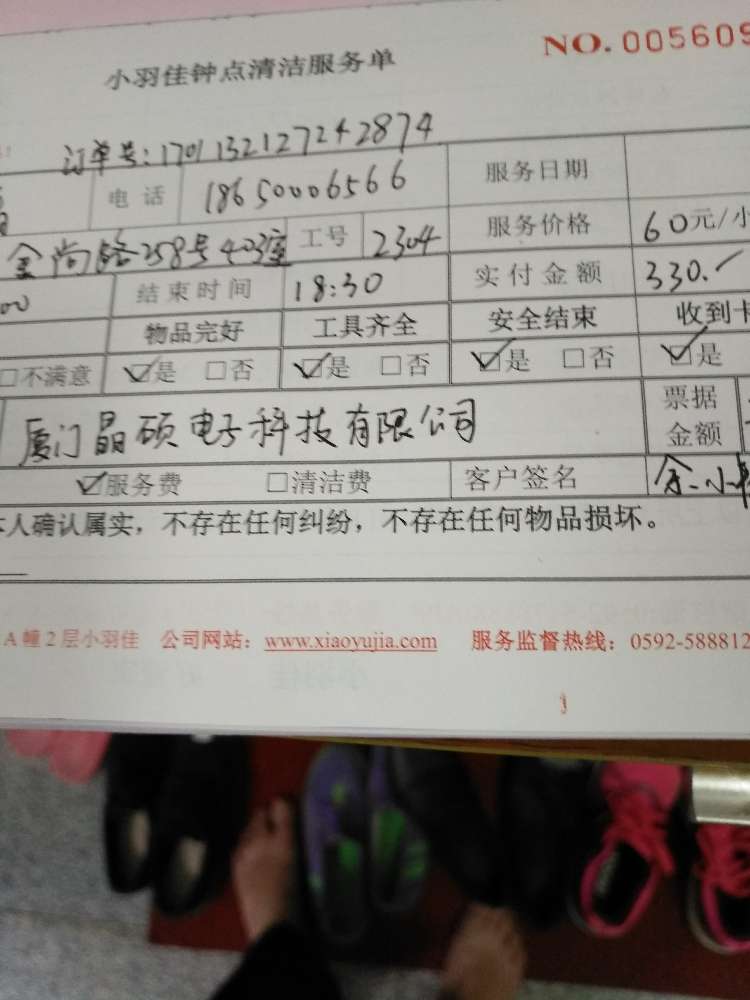 小羽佳钟点清洁服务单 NO. 005609
订单号:1701132127242874
电话 18650006566 服务日期
金尚路258号403室 工号 2304 服务价格 60元/小
00 结束时间 18:30 实付金额 330.
物品完好 工具齐全 安全结束 收到卡
□不满意 ☑是 □否 ☑是 □否 ☑是 □否 ☑是
厦门晶硕电子科技有限公司 票据
金额
☑服务费 □清洁费 客户签名 余小
本人确认属实，不存在任何纠纷，不存在任何物品损坏。
A幢2层小羽佳 公司网站：www.xiaoyujia.com 服务监督热线：0592-588812